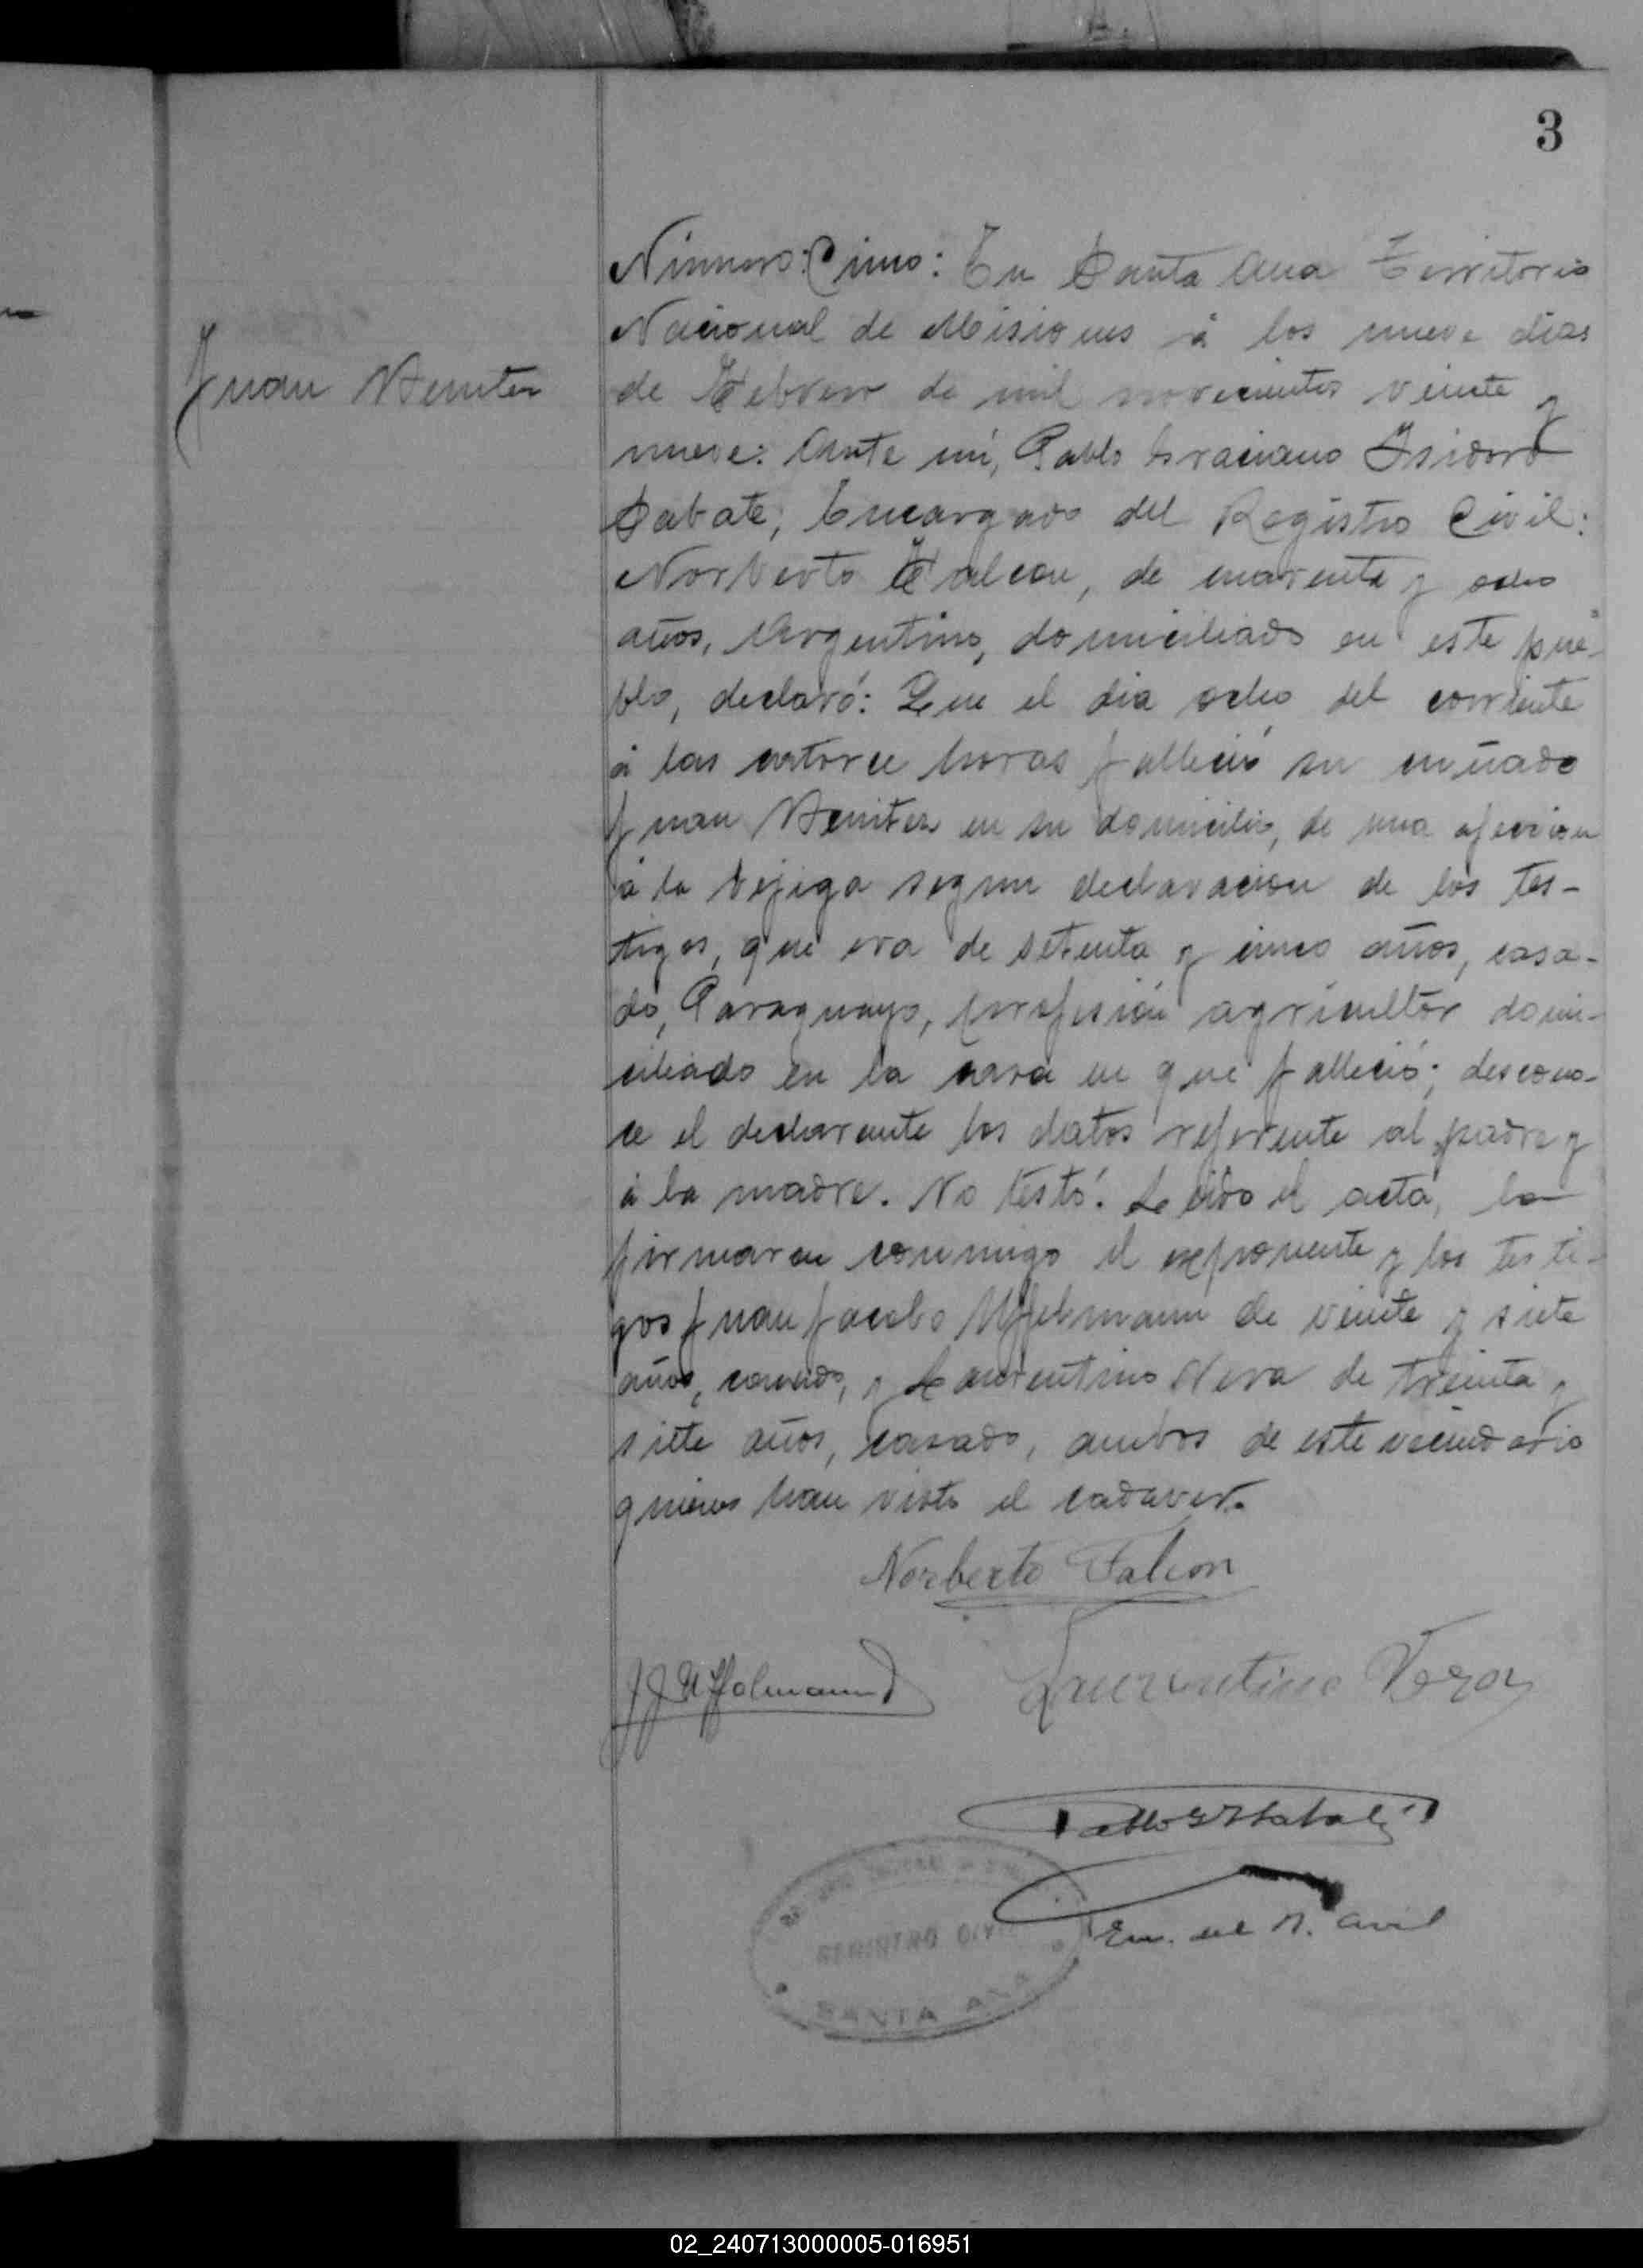 3
Número: Cinco: En Santa Ana Territorio
Nacional de Misiones á los nueve dias
Juan Benitez
de Febrero de mil novecientos veinte y
nueve: Ante mí, Pablo Graciano Isidoro
Sabate, Encargado del Registro Civil:
Norberto Falcon, de cuarenta y ocho
años, Argentino, domiciliado en este pue-
blo, declaró: Que el dia ocho del corriente
á las catorce horas falleció su cuñado
Juan Benitez en su domicilio, de una afeccion
á la vejiga segun declaracion de los tes-
tigos, que era de setenta y cinco años, casa-
do, Paraguayo, profesión agricultor domi-
ciliado en la casa en que falleció; descono-
ce el declarante los datos referente al padre y
á la madre. No testó. Leido el acta, la
firmaron conmigo el exponente y los testi-
gos Juan Jacobo Uffelmann de veinte y siete
años, casado, y Laurentino Vera de treinta y
siete años, casado, ambos de este vecindario
quienes han visto el cadaver.
Norberto Falcon
J J Uffelmann
Laurentino Vera
Pablo G I Sabaté
En. del R. Civil
REGISTRO CIVIL
SANTA ANA
02_240713000005-016951